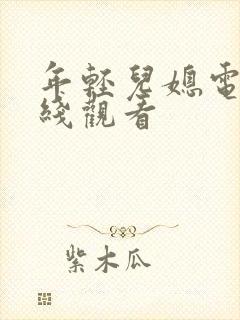 年輕兒媳電
綫觀看
紫木瓜